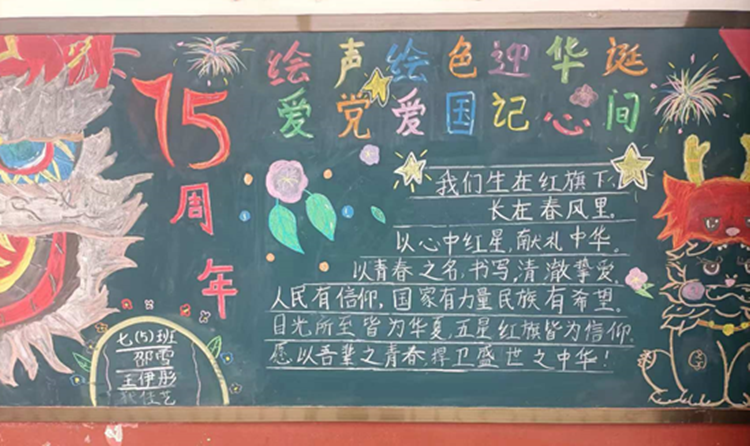 绘声绘色迎华诞
爱党爱国记心间
75
周年
我们生在红旗下,
长在春风里。
以心中红星,献礼中华。
以青春之名,书写,清澈挚爱。
人民有信仰,国家有力量民族有希望。
目光所至皆为华夏,五星红旗皆为信仰。
愿以吾辈之青春,捍卫盛世之中华!
七(5)班
邵雪
王伊彤
佳艺